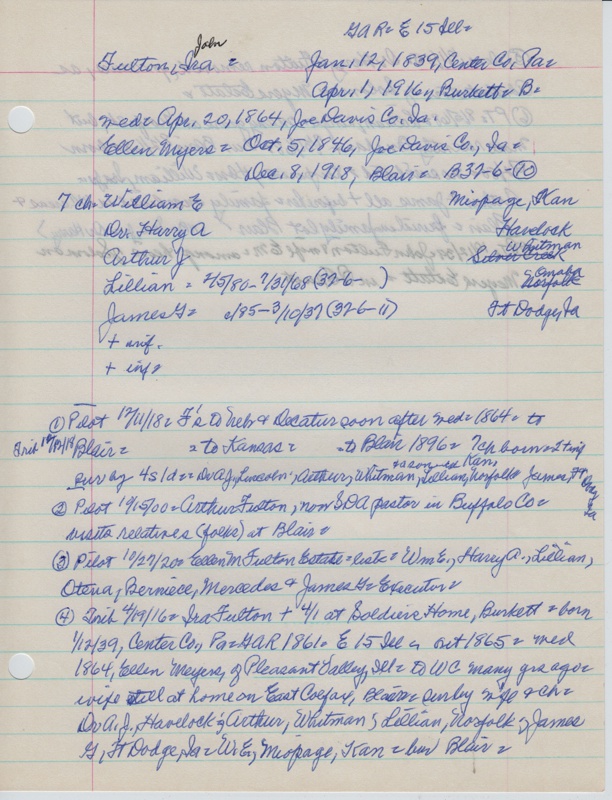 GAR = E 15 Ill =
John
Fulton, Ira = Jan, 12, 1839, Center Co, Pa =
Apr. 1, 1916, Burkett = B =
med = Apr. 20, 1864, Joe Davis Co. Ia.
Ellen Myers = Oct. 5, 1846, Joe Davis Co., Ia =
Dec. 8, 1918, Blair = B37-6-10
7 ch = William E Miopage, Kan
Dr. Harry A Havelock
Whitman
Arthur J Silver Creek
Omaha
Lillian = 2/5/80 - 7/31/68 (37-6- ) Norfolk
James G = c/85 - 3/10/37 (37-6-11) Ft Dodge, Ia
+ inf.
+ inf =
① Pilot 12/11/18 = F's to Neb & Decatur soon after med = 1864 = to
Blair = = to Kansas = = to Blair 1896 = 7 ch born = 2 in
sur by 4 s 1 d = Dr A J, Lincoln; Arthur, Whitman, Lillian, Norfolk James, Ft Dodge, Ia
② Pilot 1900 = Arthur Fulton, now SDA pastor in Buffalo Co =
visits relatives (folks) at Blair =
③ Pilot 10/27/20 = Ellen M Fulton Estate = list = Wm E., Harry A., Lillian,
Bernice, Mercedes & James G = Executor =
④ Trib 4/19/16 = Ira Fulton + 4/1 at Soldiers Home, Burkett = born
1/12/39, Center Co, Pa = GAR 1861 = E 15 Ill = out 1865 = med
1864, Ellen Meyers, of Pleasant Valley, Ill = to WC many yrs ago =
wife still at home on East Colfax, Blair = sur by wife & ch =
Dr A. J., Havelock; Arthur, Whitman; Lillian, Norfolk; James
G, Ft Dodge, Ia = W. E., Miopage, Kan = bur Blair =